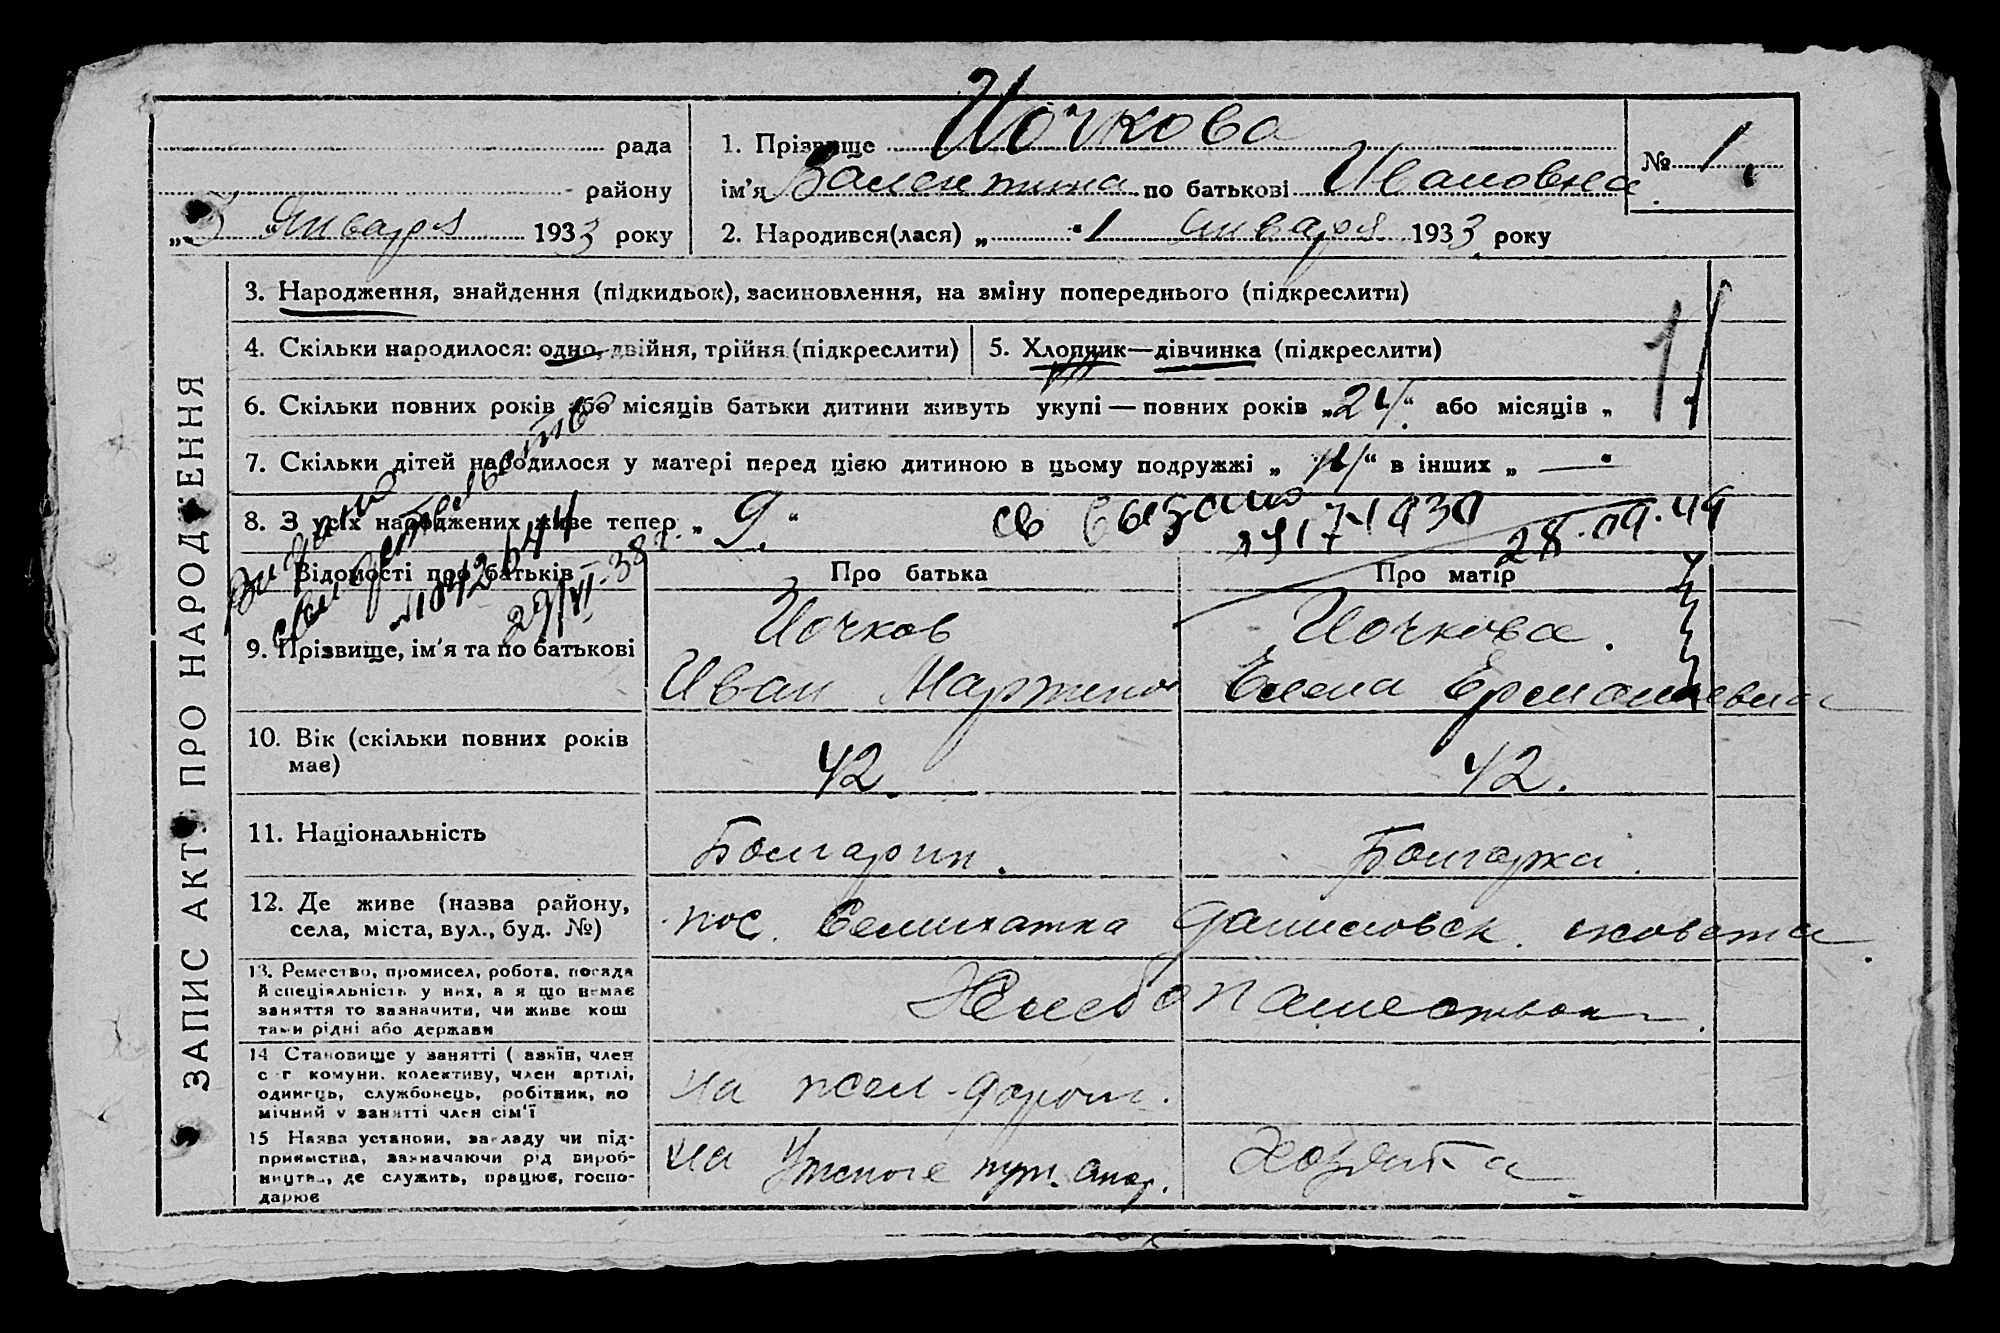 рада
1. Прізвище Иочкова
№ 1.
району
ім'я Валентина по батькові Ивановна
„3“ Января 1933 року
2. Народився(лася) „ 1 января 1933 року
ЗАПИС АКТУ ПРО НАРОДЖЕННЯ
3. Народження, знайдення (підкидьок), засиновлення, на зміну попереднього (підкреслити)
4. Скільки народилося: одно, двійня, трійня (підкреслити)
5. Хлопчик—дівчинка (підкреслити)
6. Скільки повних років або місяців батьки дитини живуть укупі — повних років „24“ або місяців „
7. Скільки дітей народилося у матері перед цією дитиною в цьому подружжі „ “ в інших „ —“
8. З усіх народжених живе тепер „ 9. “
св выдано
28.09.49
свидетельство
29/VI-38 г.
Відомості про батьків
Про батька
Про матір
9. Прізвище, ім'я та по батькові
Иочков
Иочкова.
Иван Мартинов
Елена Ермолаевна
10. Вік (скільки повних років має)
42.
42.
11. Національність
Болгарин.
Болгарка.
12. Де живе (назва району, села, міста, вул., буд. №)
пос.
13. Ремество, промисел, робота, посада
й спеціяльність у них, а я що немає
заняття то зазначити, чи живе кош
тами рідні або держави
Хлебопашеством.
14 Становище у занятті (хазяїн, член
с-г комуни, колективу, член артілі,
одинець, службонець, робітник, по
мічний у занятті член сім'ї
на жел-дорог.
15 Назва установи, закладу чи під-
приємства, зазначаючи рід вироб-
ництва, де служить, працює, госпо-
дарює
на
Хозяйка